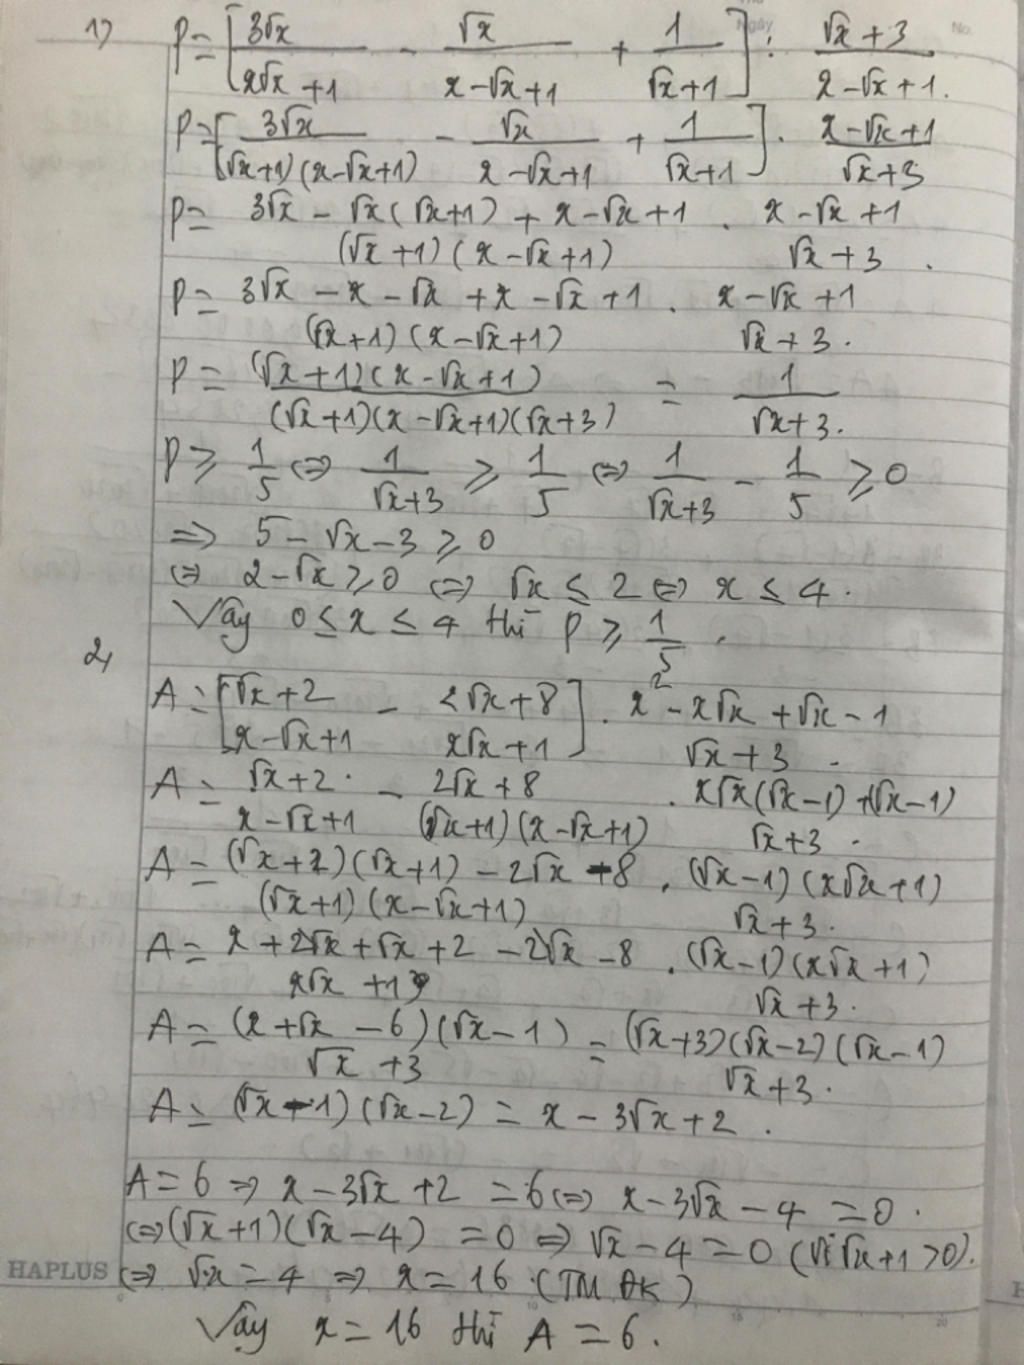 Ngày No.
1) P = [3√x / x√x + 1 - √x / x - √x + 1 + 1 / √x + 1] : √x + 3 / x - √x + 1.
P = [3√x / (√x + 1)(x - √x + 1) - √x / x - √x + 1 + 1 / √x + 1] . x - √x + 1 / √x + 3
P = 3√x - √x(√x + 1) + x - √x + 1 / (√x + 1)(x - √x + 1) . x - √x + 1 / √x + 3.
P = 3√x - x - √x + x - √x + 1 / (√x + 1)(x - √x + 1) . x - √x + 1 / √x + 3.
P = (√x + 1)(x - √x + 1) / (√x + 1)(x - √x + 1)(√x + 3) = 1 / √x + 3.
P ≥ 1/5 ⇔ 1 / √x + 3 ≥ 1/5 ⇔ 1 / √x + 3 - 1/5 ≥ 0
⇒ 5 - √x - 3 ≥ 0
⇔ 2 - √x ≥ 0 ⇔ √x ≤ 2 ⇔ x ≤ 4.
Vậy 0 ≤ x ≤ 4 thì P ≥ 1/5.
2, A = [√x + 2 / x - √x + 1 - 2√x + 8 / x√x + 1] . x² - x√x + √x - 1 / √x + 3.
A = √x + 2 / x - √x + 1 - 2√x + 8 / (√x + 1)(x - √x + 1) . x√x(√x - 1) + (√x - 1) / √x + 3.
A = (√x + 2)(√x + 1) - 2√x - 8 / (√x + 1)(x - √x + 1) . (√x - 1)(x√x + 1) / √x + 3.
A = x + 2√x + √x + 2 - 2√x - 8 / x√x + 1 . (√x - 1)(x√x + 1) / √x + 3.
A = (x + √x - 6)(√x - 1) / √x + 3 = (√x + 3)(√x - 2)(√x - 1) / √x + 3.
A = (√x - 1)(√x - 2) = x - 3√x + 2.
A = 6 ⇒ x - 3√x + 2 = 6 ⇔ x - 3√x - 4 = 0.
⇔ (√x + 1)(√x - 4) = 0 ⇒ √x - 4 = 0 (Vì √x + 1 > 0).
HAPLUS ⇔ √x = 4 ⇒ x = 16 (TM ĐK)
Vậy x = 16 thì A = 6.